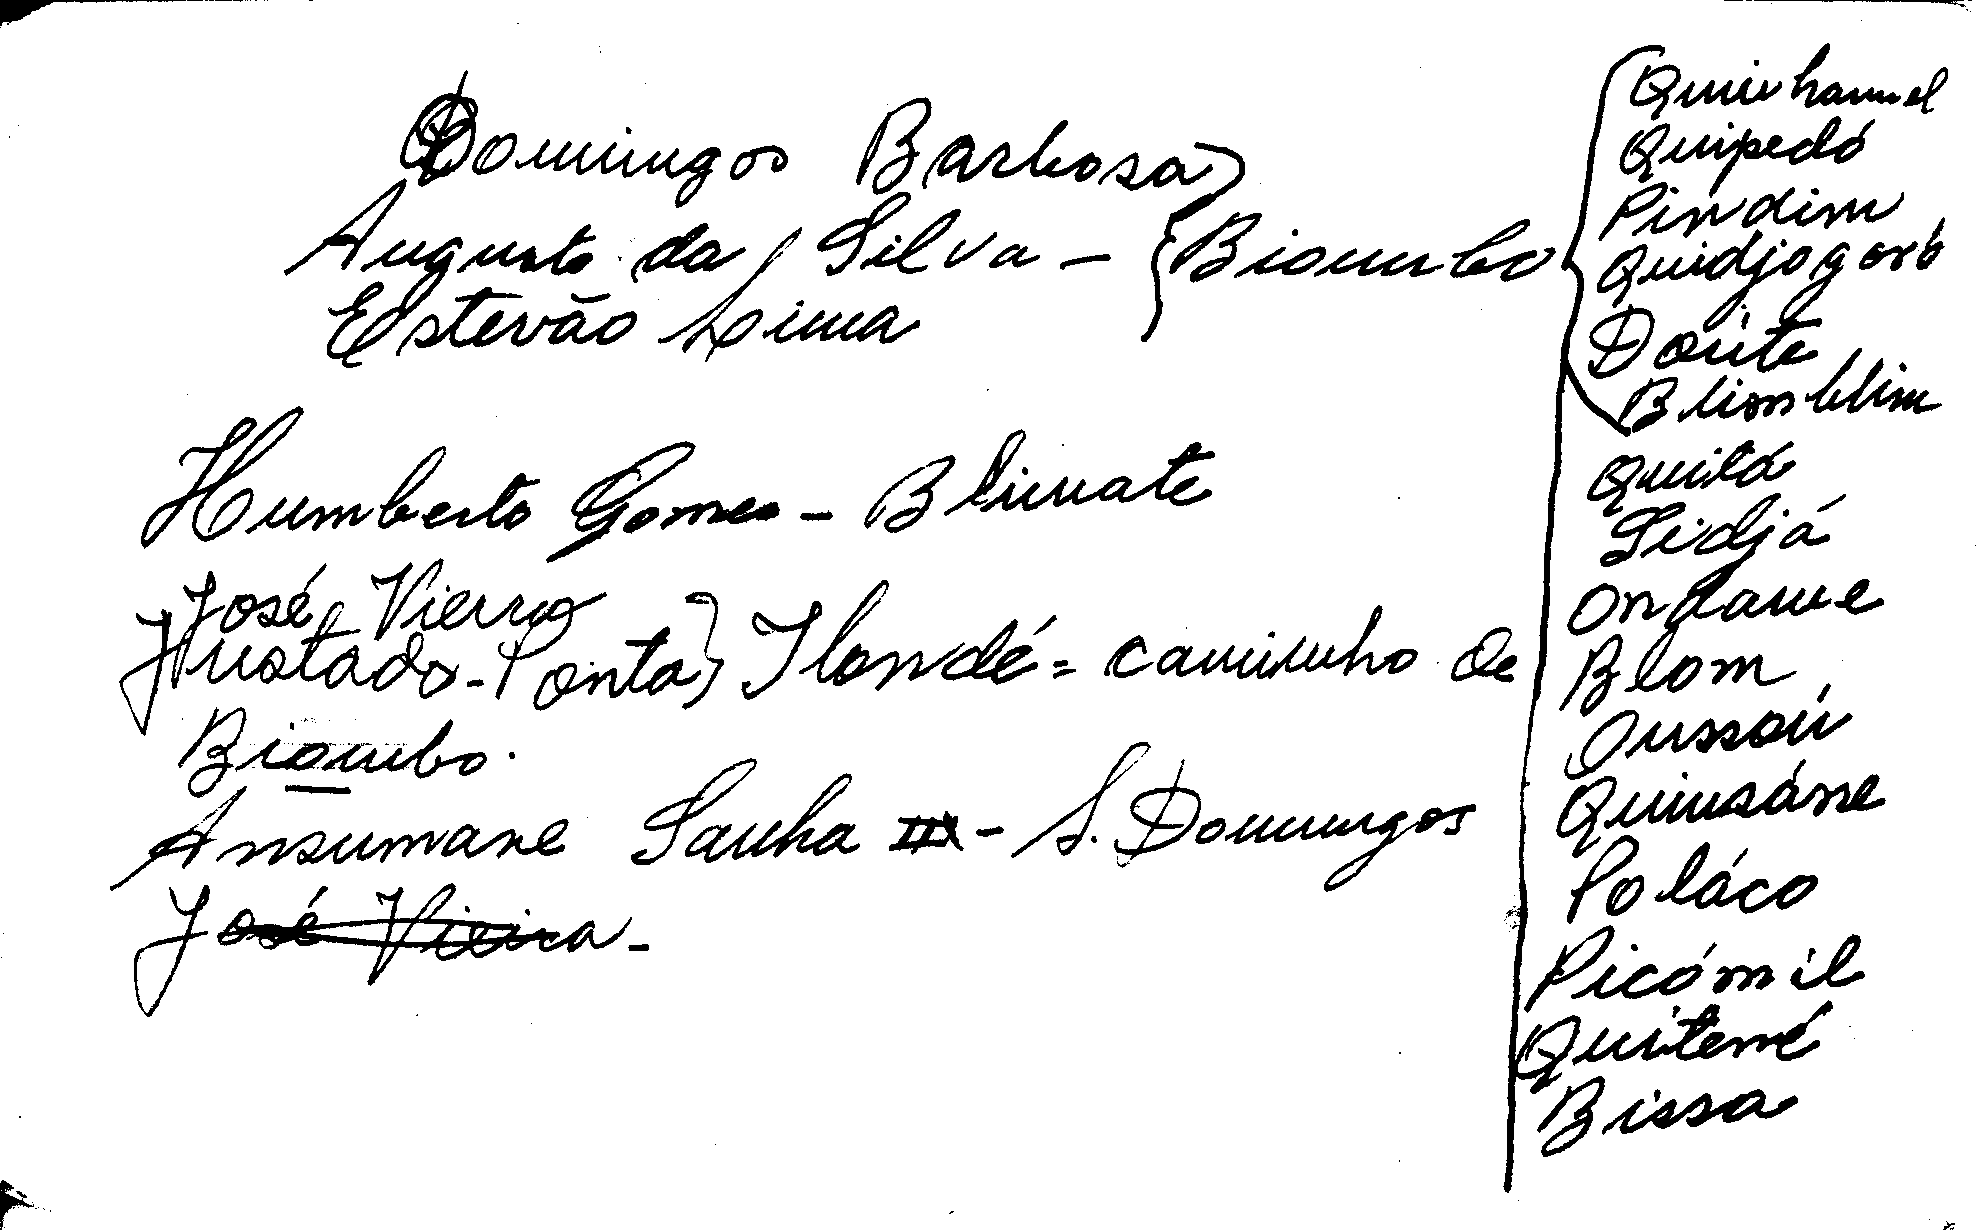 Domingos Barbosa
Augusto da Silva - Biombo
Estevão Lima
Humberto Gomes - Blimate
José Vierra
Justado-Ponta Ilondé = caminho de
Biombo.
Ansumane Sanha III - S. Domingos
José Vieira -
Quinhamel
Quipedó
Pindim
Quidjogoró
Doúte
Blimblim
Quitá
Sidjá
Ondame
Blom
Oussoú
Quiusáne
Poláco
Picómil
Quitené
Bissa